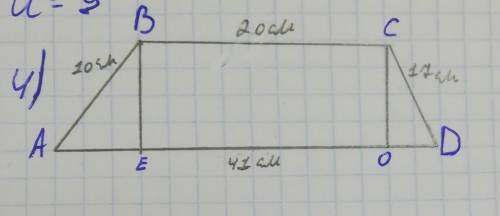 B 20см C
10см 17см
4)
A E 41см O D